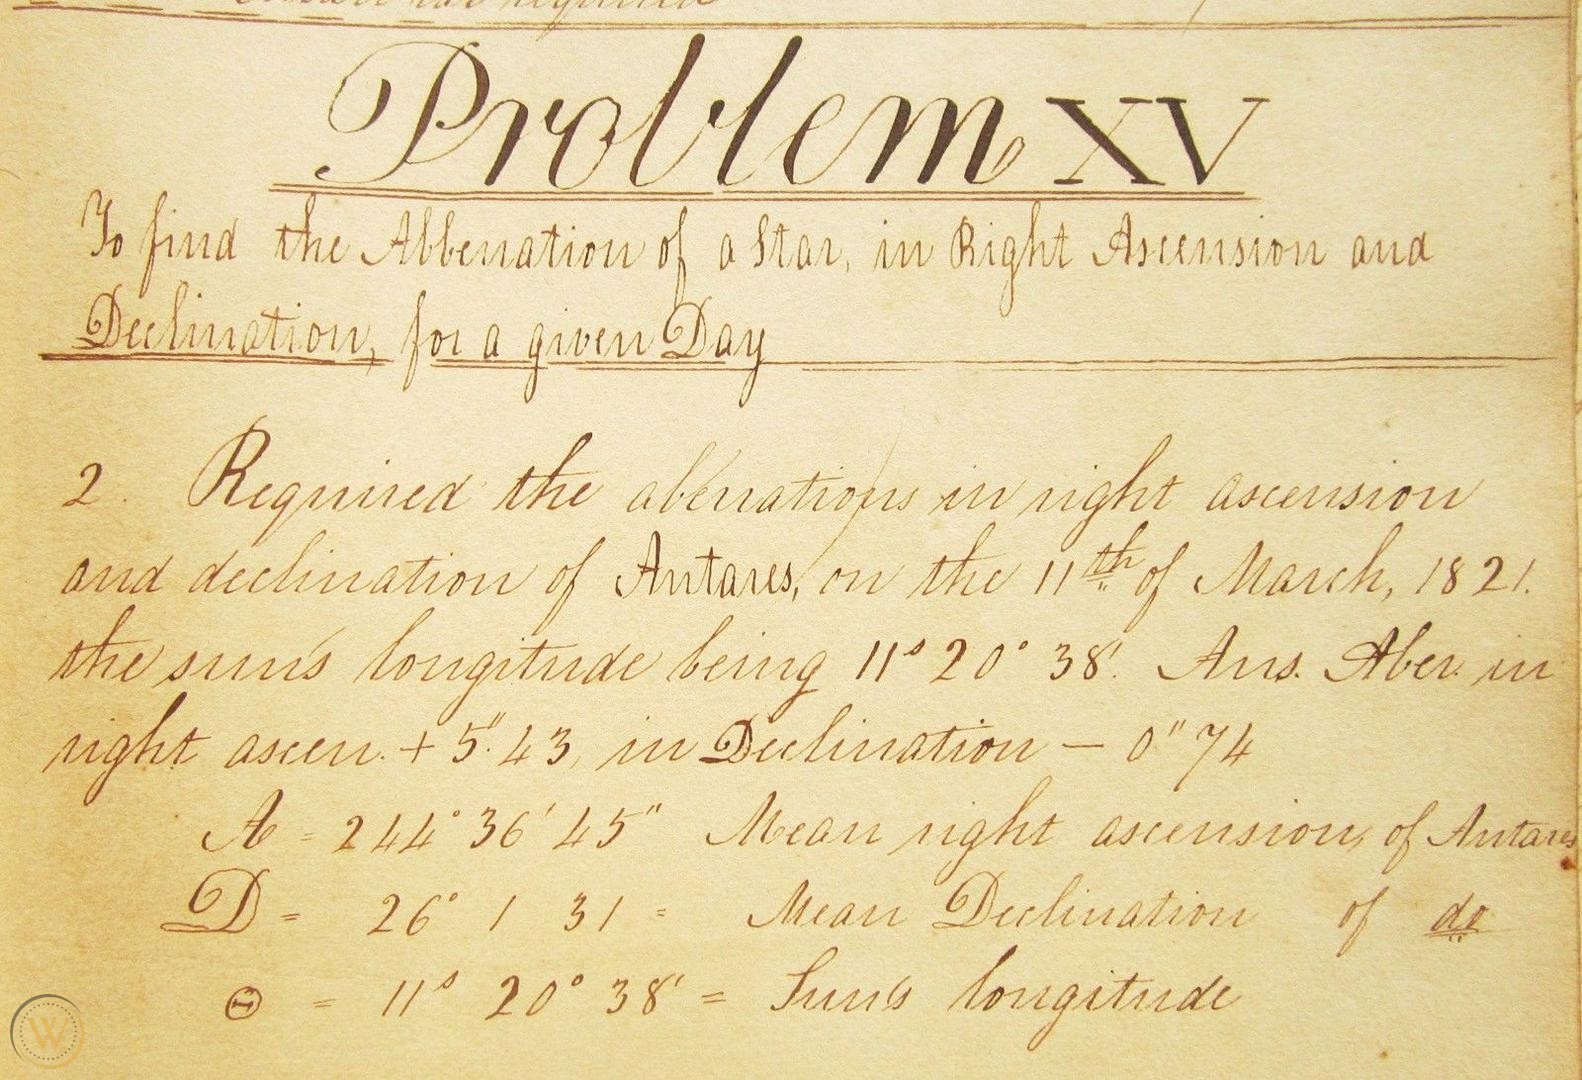 Problem XV
To find the Abberration of a Star, in Right Ascension and
Declination, for a given Day
2. Required the aberrations in right ascension
and declination of Antares, on the 11th of March, 1821.
the sun's longitude being 11ˢ 20° 38'. Ans. Aber. in
right ascen. + 5".43, in Declination — 0" 74
A = 244° 36' 45" Mean right ascension, of Antares
D = 26° 1 31 = Mean Declination of do
☉ = 11ˢ 20° 38' = Sun's longitude
W